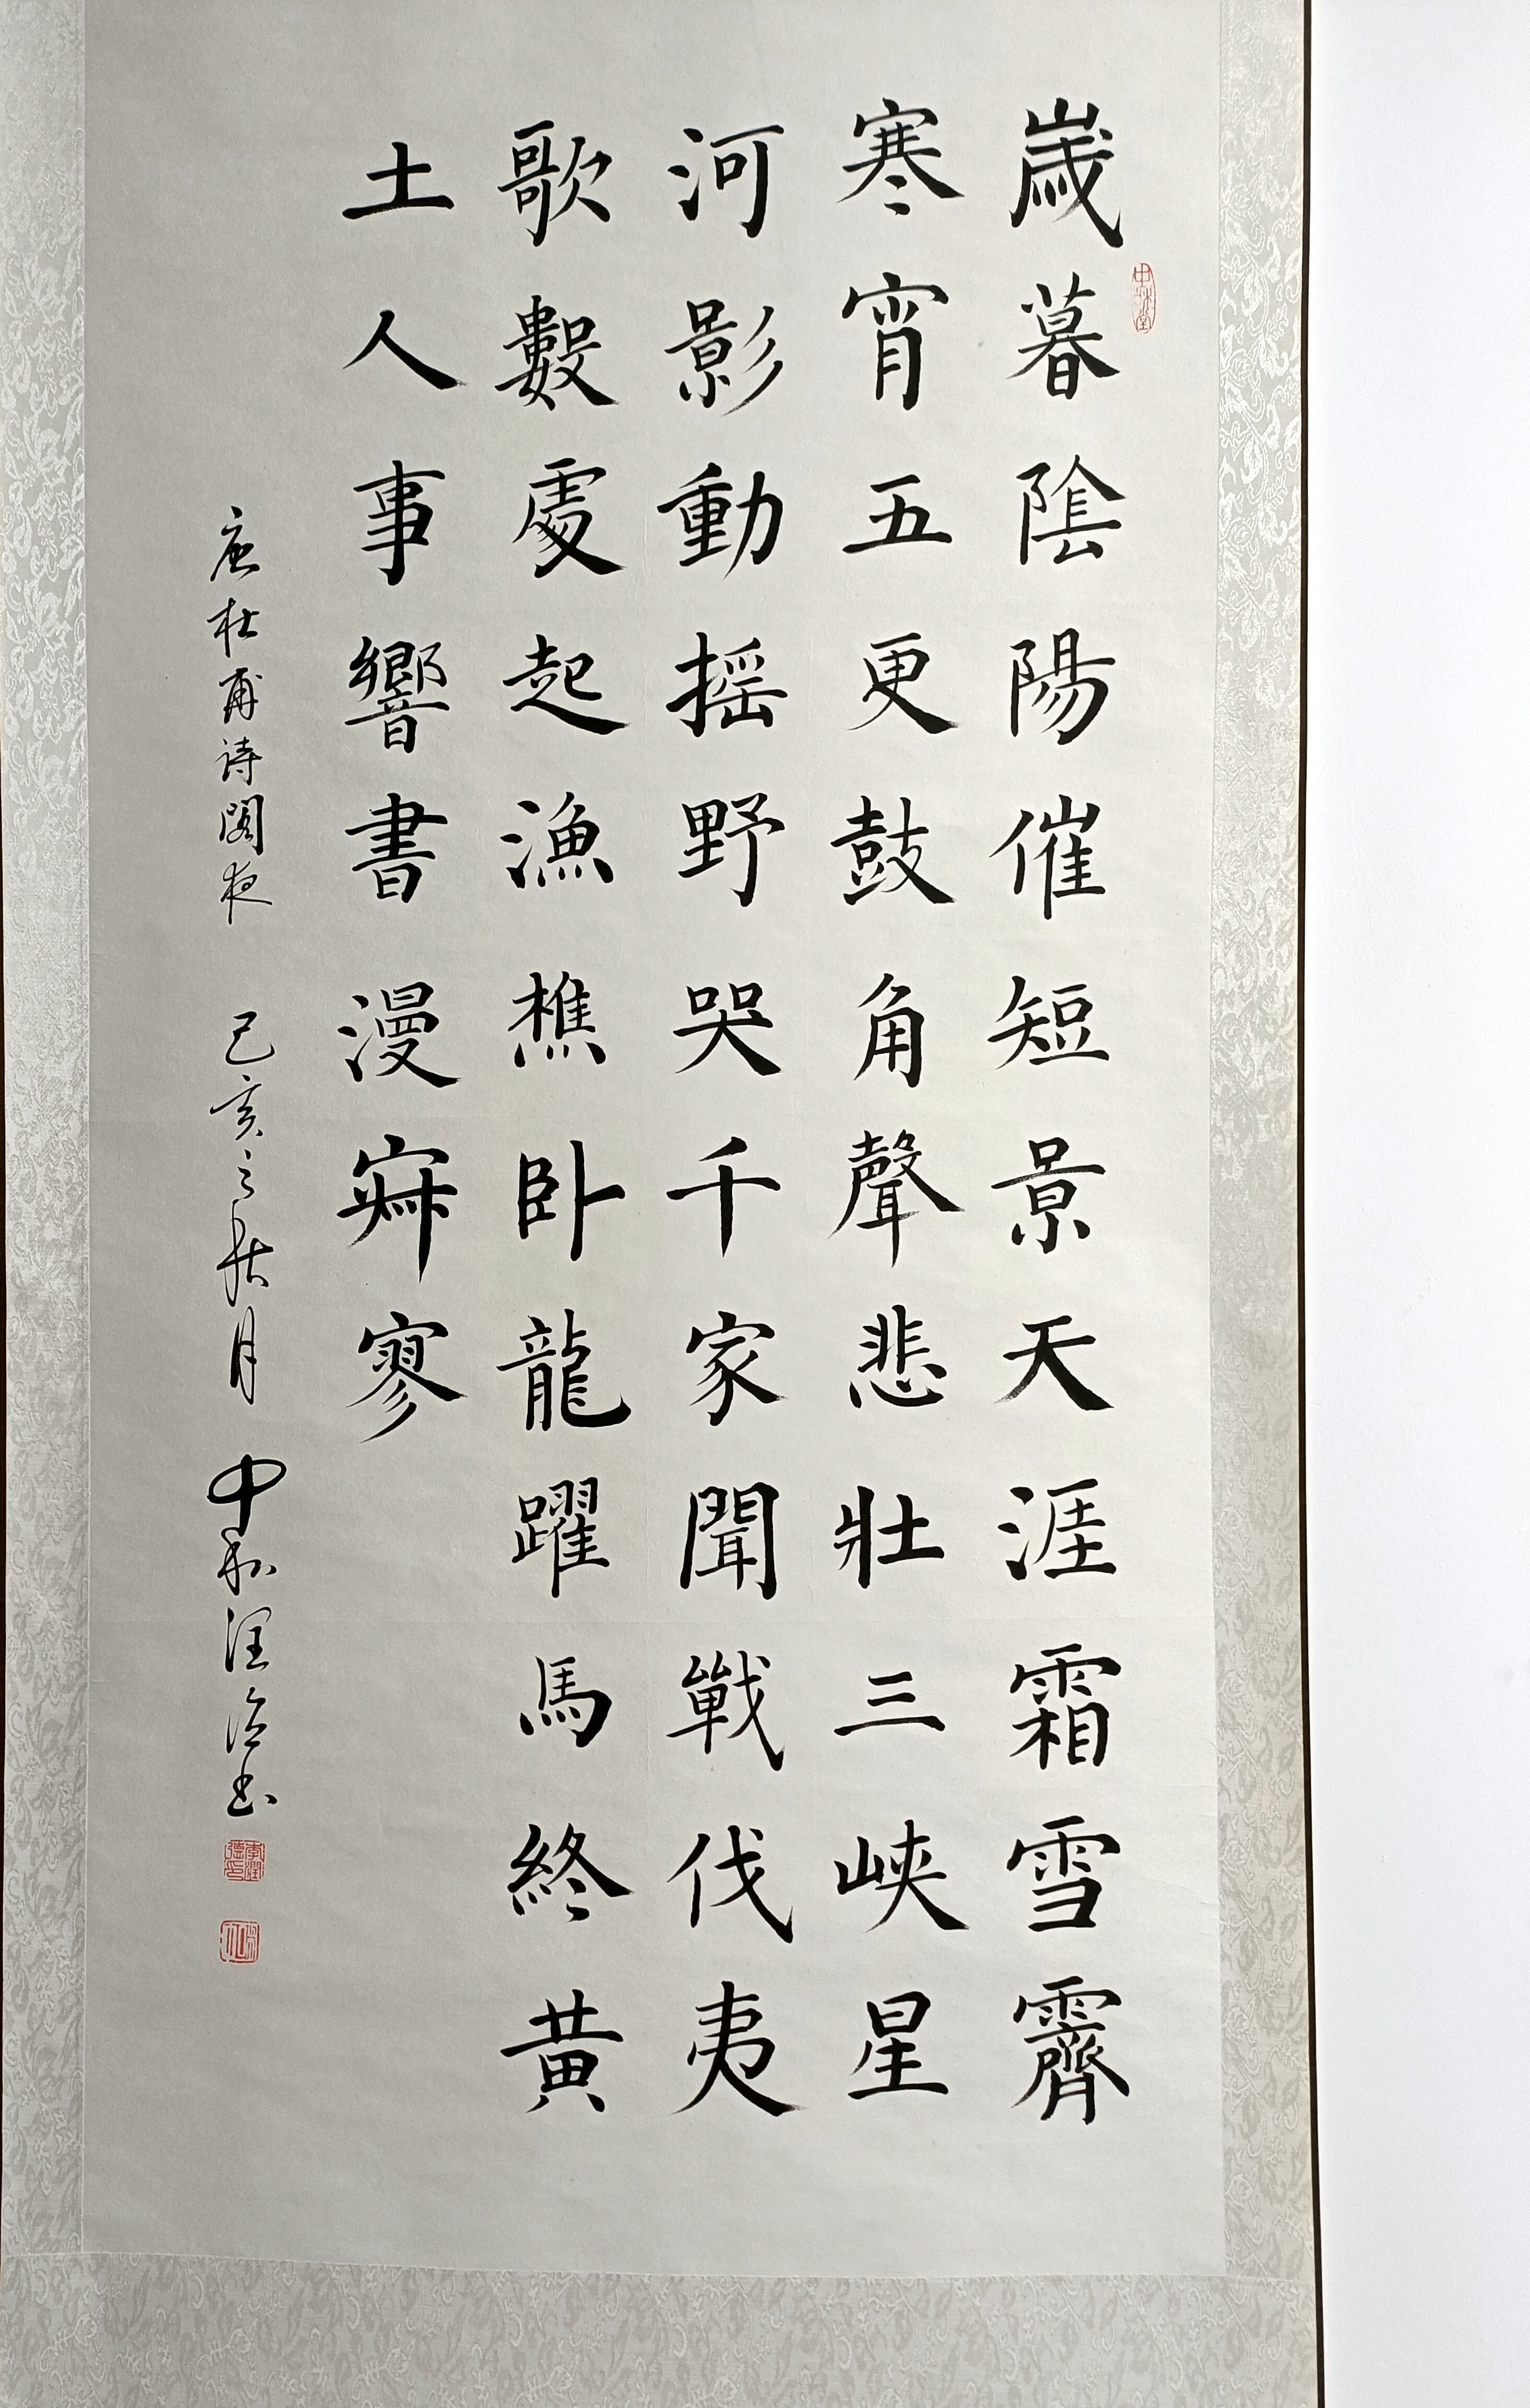 中和堂
歲暮陰陽催短景天涯霜雪霽
寒宵五更鼓角聲悲壯三峽星
河影動搖野哭千家聞戰伐夷
歌數處起漁樵卧龍躍馬終黃
土人事響書漫寂寥
唐杜甫诗閣夜 己亥之秋月 中和润德书
李潤德印